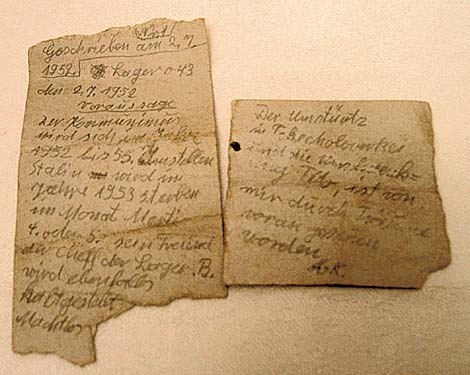 Geschrieben am 2.7.
1952. Lager 043
den 2.7.1952
voraussage
Der Kommunismus
wird sich im Jahre
1952 bis 55.
Stalin wird im
Jahre 1953 sterben
im Monat März
4. oder 5. sein Freund
der Cheff der Lager. B.
wird ebenfalls
kaltgestellt
Machtlos
Der Umsturz
in
und die
Tito, ist von
mir durch Träume
voraus gesehen
worden
A.K.